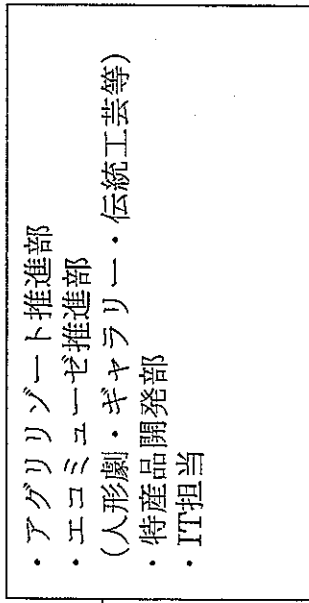 ・アグリリゾート推進部
・エコミューゼ推進部
(人形劇・ギャラリー・伝統工芸等)
・特産品開発部
・IT担当